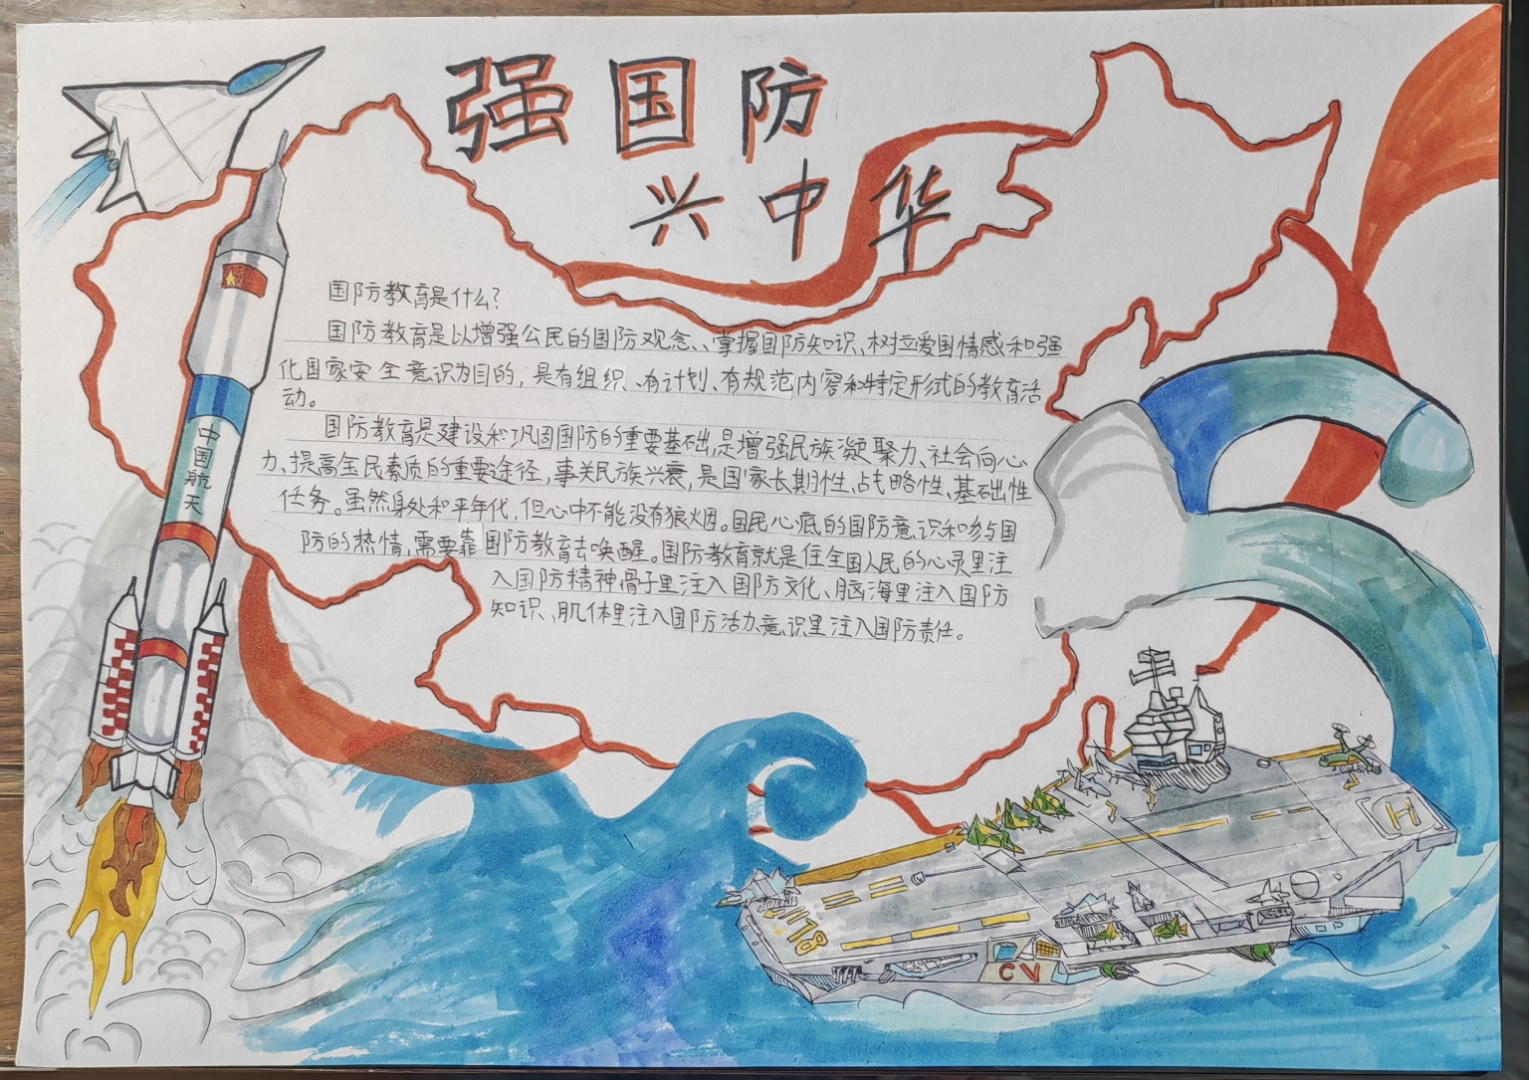 强国防
兴中华
国防教育是什么?
国防教育是以增强公民的国防观念、掌握国防知识、树立爱国情感和强
化国家安全意识为目的,是有组织、有计划、有规范内容和特定形式的教育活
动。
国防教育是建设和巩固国防的重要基础,是增强民族凝聚力、社会向心
力、提高全民素质的重要途径,事关民族兴衰,是国家长期性、战略性、基础性
任务。虽然身处和平年代,但心中不能没有狼烟。国民心底的国防意识和参与国
防的热情,需要靠国防教育去唤醒。国防教育就是住全国人民的心灵里注
入国防精神骨子里注入国防文化、脑海里注入国防
知识、肌体里注入国防活力、意识里注入国防责任。
中国航天
H
CV